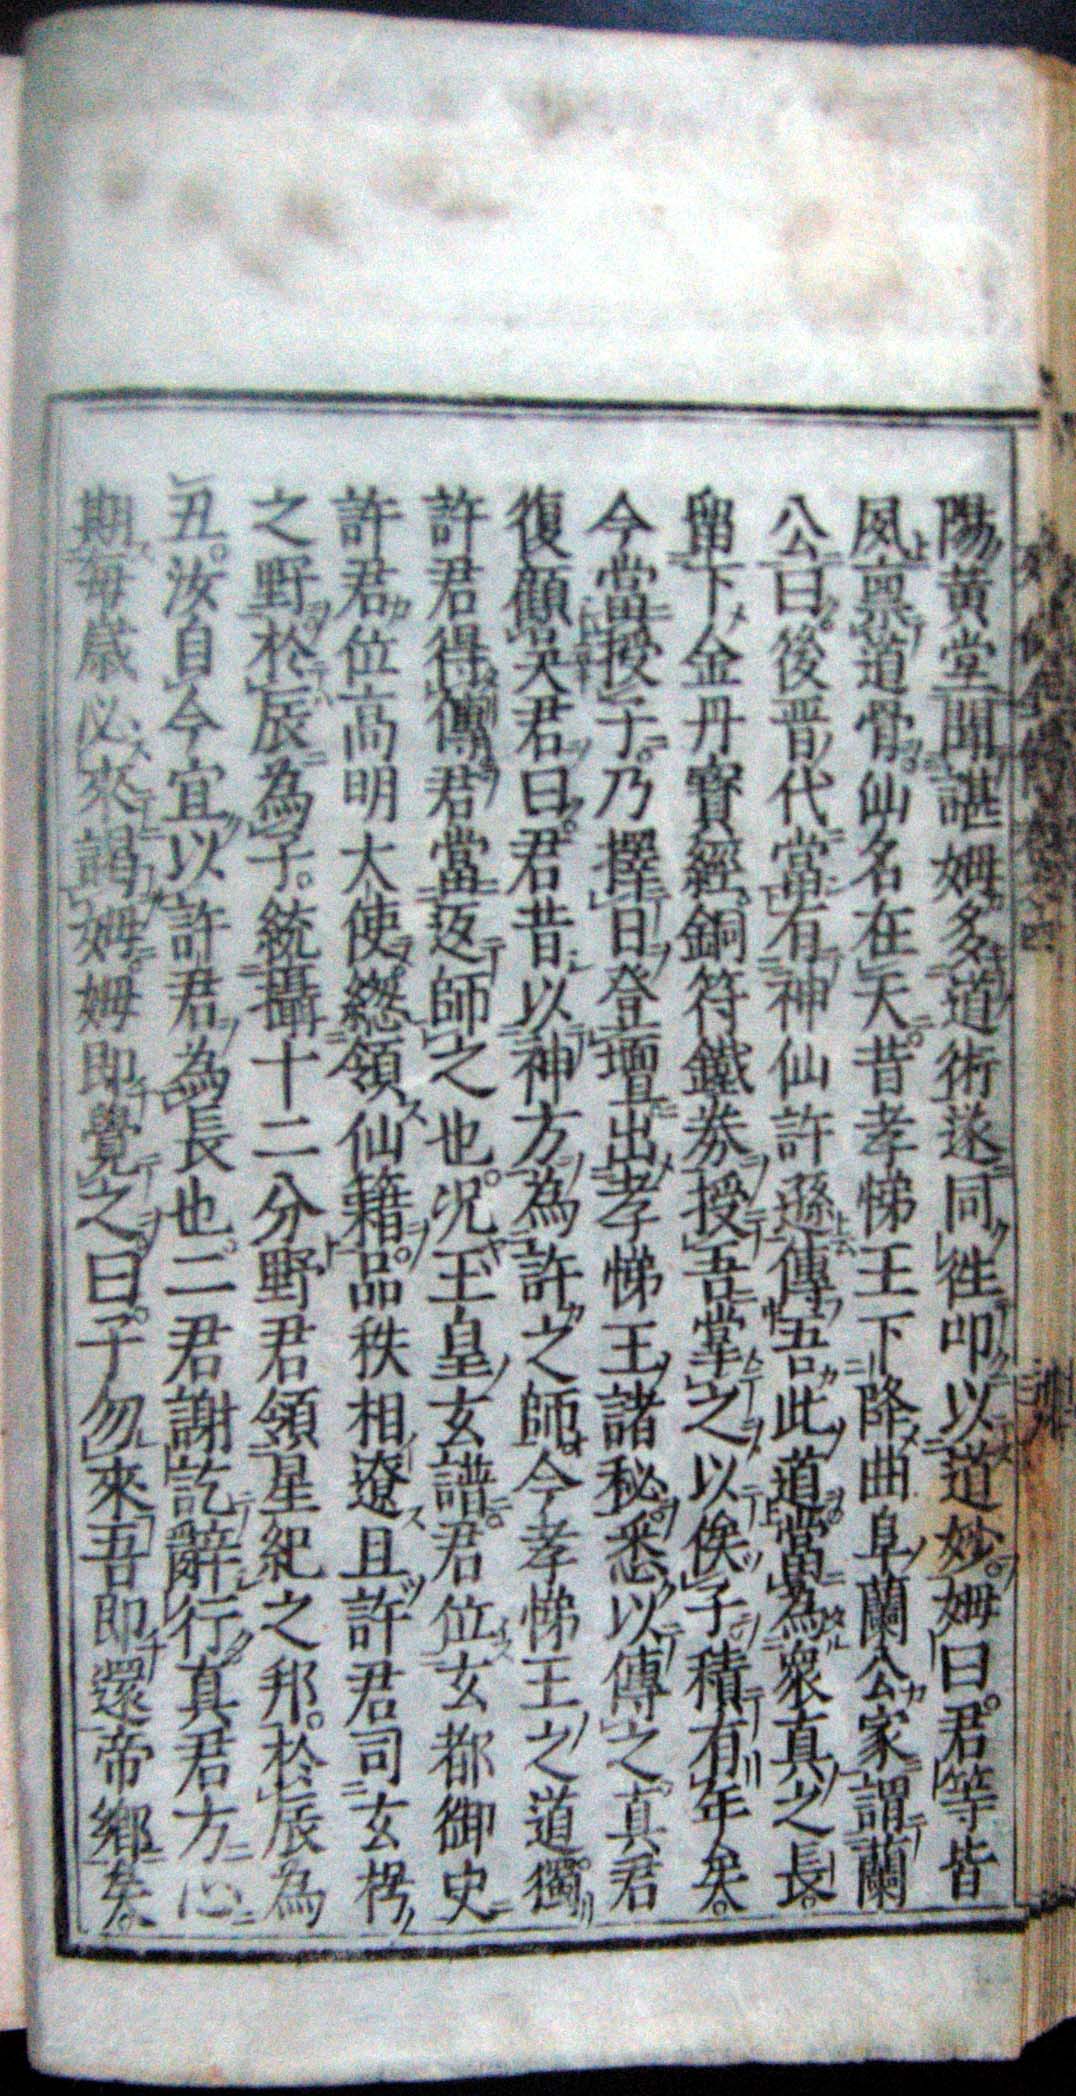 陽黃堂聞諶姆多道術遂同徃叩以道妙姆曰君等皆
夙禀道骨仙名在天昔孝悌王下降曲阜蘭公家謂蘭
公曰後晋代當有神仙許遜傳吾此道當為衆真之長
留下金丹寳經銅符鐵劵授吾掌之以俟子積有年矣
今當授子乃擇日登壇出孝悌王諸秘悉以傳之真君
復顧吴君曰君昔以神方為許之師今孝悌王之道獨
許君得傳君當返師之也况玉皇玄譜君位玄都御史
許君位高明大使緫領仙籍品秩相遼且許君司玄枵
之野於辰為子統攝十二分野君領星紀之邦於辰為
丑汝自今宜以許君為長也二君謝訖辭行真君方心
期每歳必來謁姆姆即覺之曰子勿來吾即還帝鄉矣